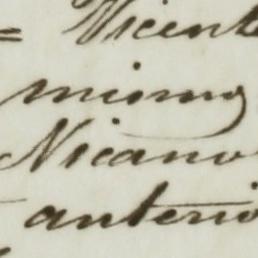 = Vicent
mismo
Nicano
anterio